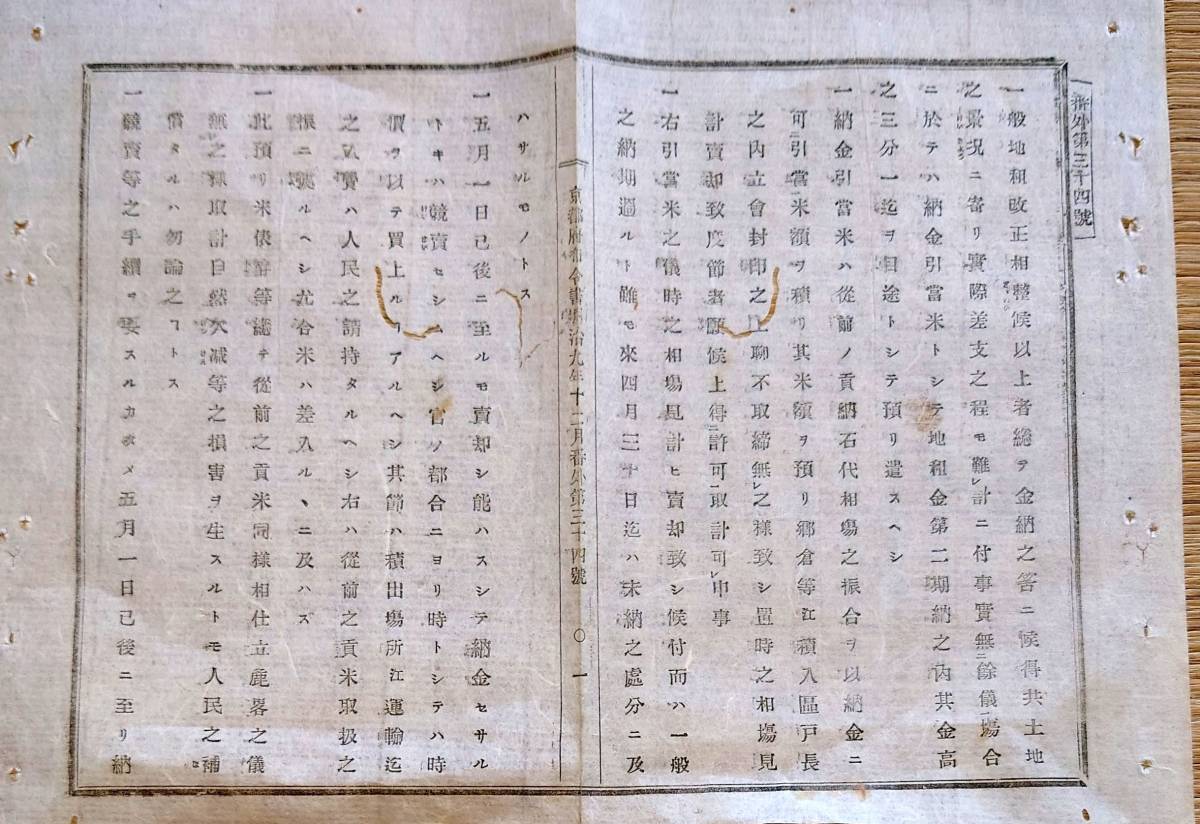 番外第三十四號
一般地租改正相整候以上者總テ金納之筈ニ候得共土地
之景况ニ寄リ實際差支之程モ難レ計ニ付事實無二餘儀一塲合
ニ於テハ納金引當米トシテ地租金第二期納之内其金高
之三分一迄ヲ目途トシテ預リ遣スヘシ
一納金引當米ハ從前ノ貢納石代相塲之振合ヲ以納金ニ
可二引當一米額ヲ積リ其米額ヲ預リ郷倉等江積入區戸長
之内立會封印之上聊不取締無レ之樣致シ置時之相塲見
計賣却致度節者願候上得二許可一取計可レ申事
一右引當米之儀時之相塲見計ヒ賣却致シ候付而ハ一般
之納期過ルト雖モ來四月三十日迄ハ未納之處分ニ及
京都府布令書明治九年十二月番外第三十四號 〇 一
ハサルモノトス
一五月一日已後ニ至ルモ賣却シ能ハスシテ納金セサル
トキハ競賣セシムヘシ官ノ都合ニヨリ時トシテハ時
價ヲ以テ買上ルヿアルヘシ其節ハ積出塲所江運輸迄
之入費ハ人民之請持タルヘシ右ハ從前之貢米取扱之
振ニ據ルヘシ尤合米ハ差入ルヽニ及ハズ
一此預リ米俵拵等總テ從前之貢米同樣相仕立麁畧之儀
無レ之樣取計自然欠减等之損害ヲ生スルトモ人民之補
償タルハ勿論之ヿトス
一競賣等之手續ヲ要スルカタメ五月一日已後ニ至リ納